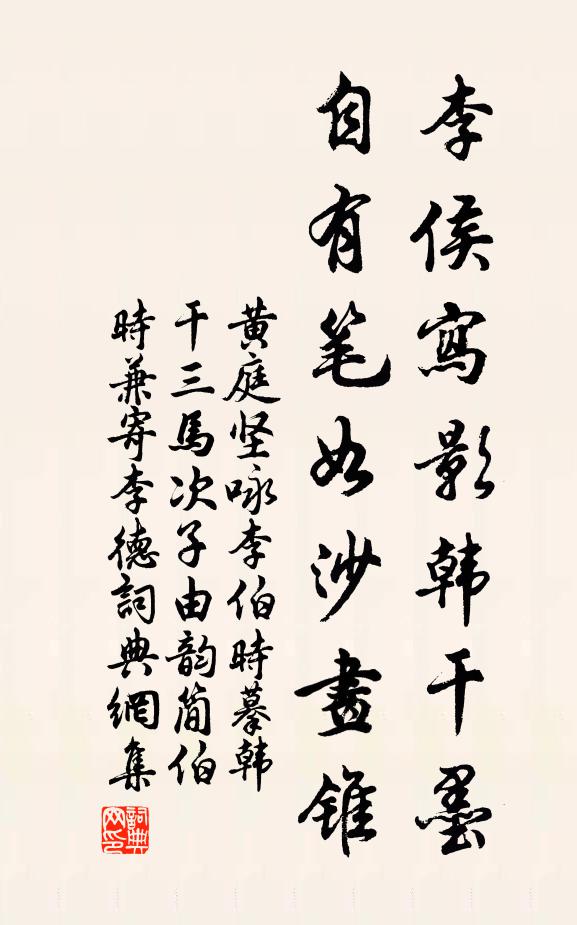 李侯寫影韩干墨
自有笔如沙畫錐
黄庭坚咏李伯時摹韩
干三馬次子由韵简伯
時兼寄李德詞典網集
詞典网印